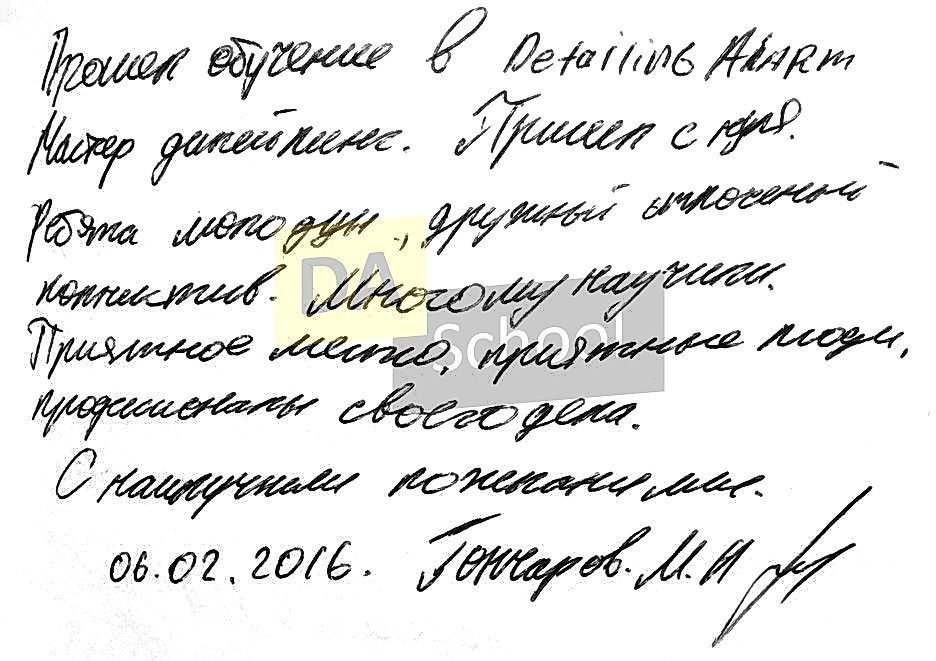 Прошел обучение в Detailing
Мастер детейлинг. Пришел с нуля.
Ребята молодцы, дружный сплоченый
коллектив. Многому научили.
Приятное место, приятные люди,
профессионалы своего дела.
С наилучшими пожеланиями.
06.02.2016. Гончаров. М.И
DA
School